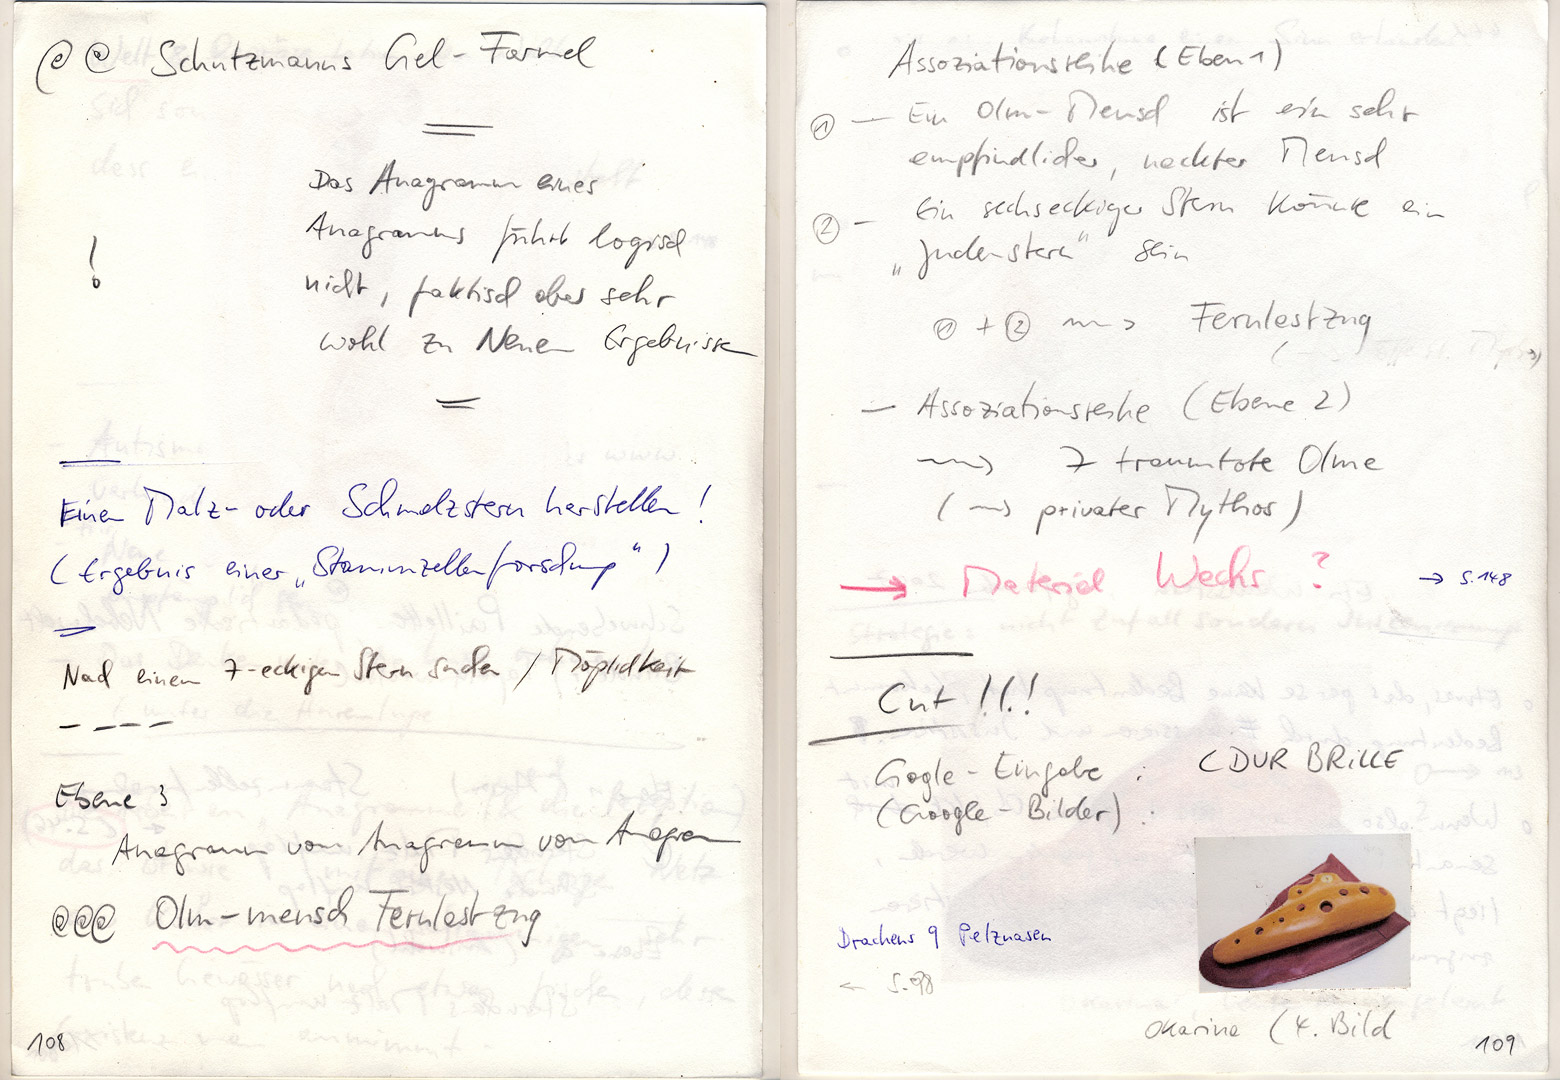 @ @ Schutzmanns Gel-Formel
Das Anagramm eines
Anagramms führt logisch
nicht, faktisch aber sehr
wohl zu Neuen Ergebnissen
!
Einen Malz- oder Schmelzstern herstellen!
(Ergebnis einer „Stammzellenforschung“)
Nach einem 7-eckigen Stern suchen / Möglichkeit
Ebene 3
Anagramm vom Anagramm vom Anagram
@@@ Olm-mensch Fernlestzug
108
Assoziationsreihe (Eben 1)
① — Ein Olm-Mensch ist ein sehr
empfindlicher, nackter Mensch
② — Ein sechseckiger Stern könnte ein
„Judenstern“ sein
① + ② → Fernlestzug
— Assoziationsreihe (Ebene 2)
→ 7 traumtote Olme
(→ privater Mythos)
→ Material Wachs ?
→ S. 148
Cut !!!
Gogle-Eingabe :
(Google-Bilder) :
CDUR BRILLE
Drachens 9 Pelznasen
← S. 98
Okarina (4. Bild
109